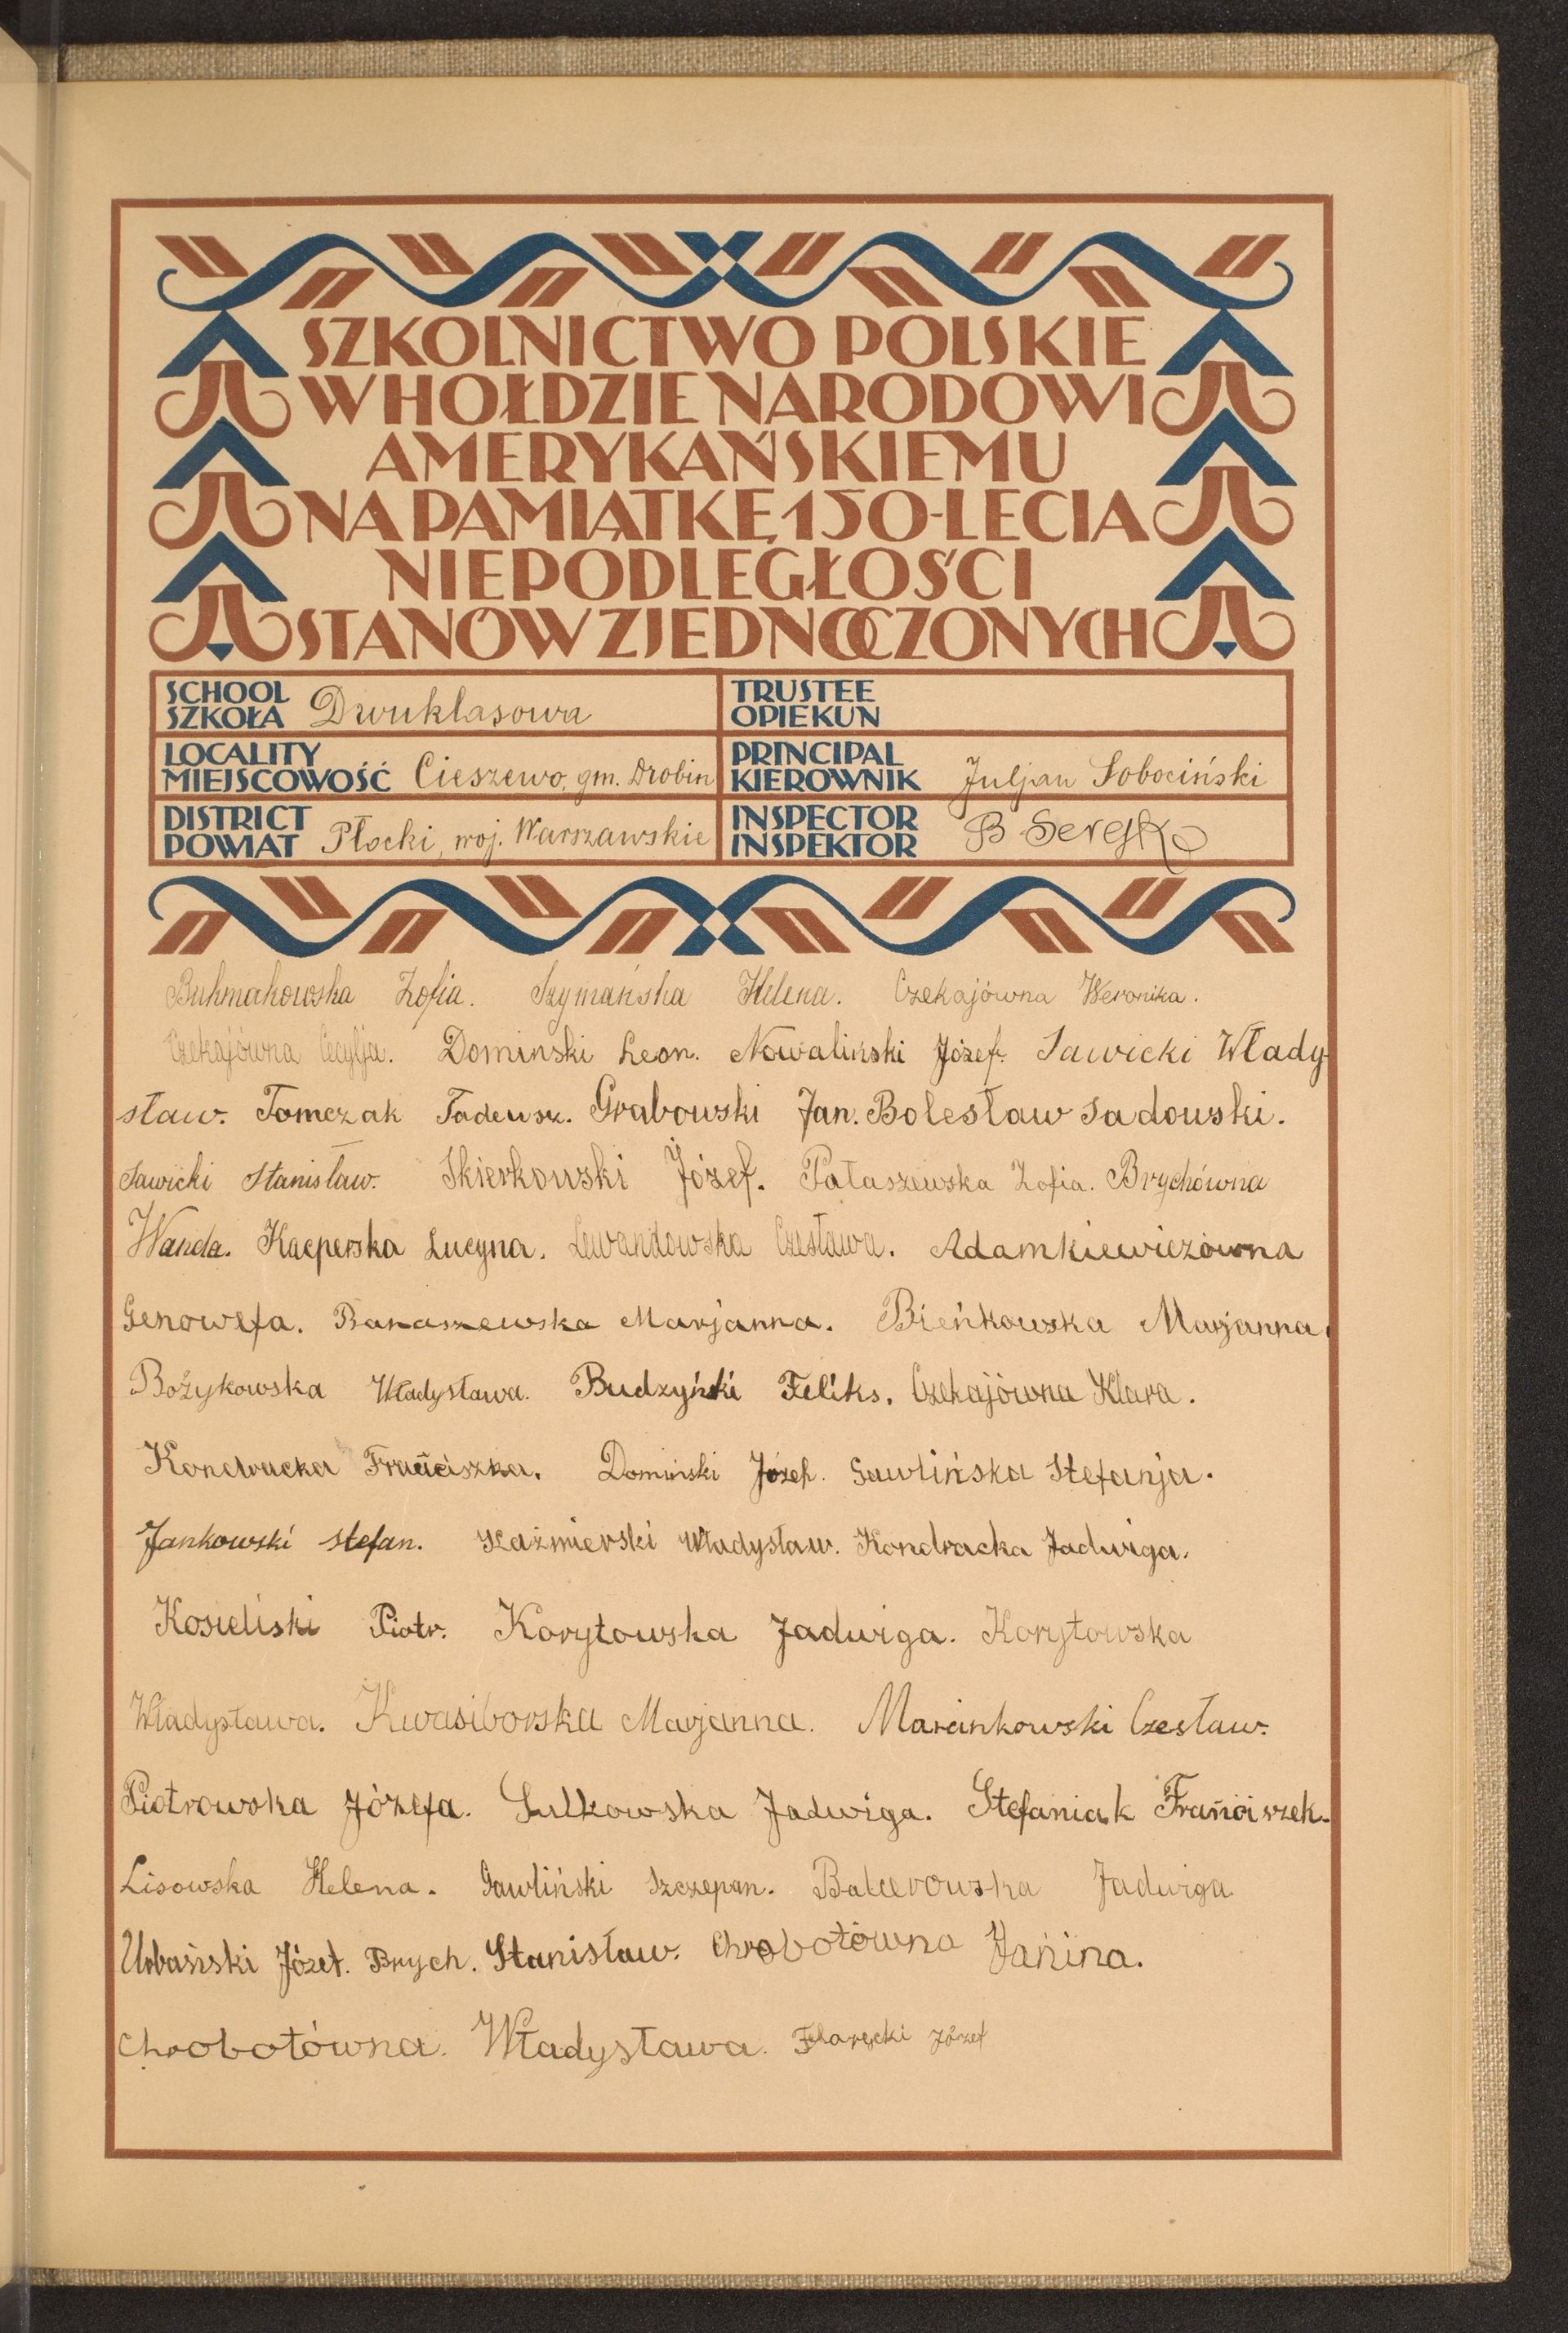 SZKOLNICTWO POLSKIE
W HOŁDZIE NARODOWI
AMERYKAŃSKIEMU
NA PAMIĄTKĘ 150-LECIA
NIEPODLEGŁOŚCI
STANÓW ZJEDNOCZONYCH
SCHOOL
SZKOŁA Dwuklasowa
TRUSTEE
OPIEKUN
LOCALITY
MIEJSCOWOŚĆ Cieszewo, gm. Drobin
PRINCIPAL
KIEROWNIK Juljan Sobociński
DISTRICT
POWIAT Płocki, woj. Warszawskie
INSPECTOR
INSPEKTOR B
Zofia. Szymańska Helena. Czekajówna Weronika.
Czekajówna Cecylja. Dominski Leon. Nowaliński Józef. Sawicki Włady-
sław. Tomczak Tadeusz. Grabowski Jan. Bolesław Sadowski.
Sawicki Stanisław. Skierkowski Józef. Pałaszewska Zofia. Brychówna
Wanda. Kacperska Lucyna. Lewandowska Czesława. Adamkiewiczówna
Genowefa. Banaszewska Marjanna. Bieńkowska Marjanna.
Bożykowska Władysława. Budzyński Feliks. Czekajówna Klara.
Kondracka Franciszka. Domiński Józef. Gawlińska Stefanja.
Jankowski Stefan. Kaźmierski Władysław. Kondracka Jadwiga.
Kosieliski Piotr. Korytowska Jadwiga. Korytowska
Władysława. Kwasiborska Marjanna. Marcinkowski Czesław.
Piotrowska Józefa. Sulkowska Jadwiga. Stefaniak Franciszek.
Lisowska Helena. Gawliński Szczepan. Balcerowska Jadwiga
Urbański Józef. Brych. Stanisław. Chrobotówna Janina.
Chrobotówna. Władysława. Józef